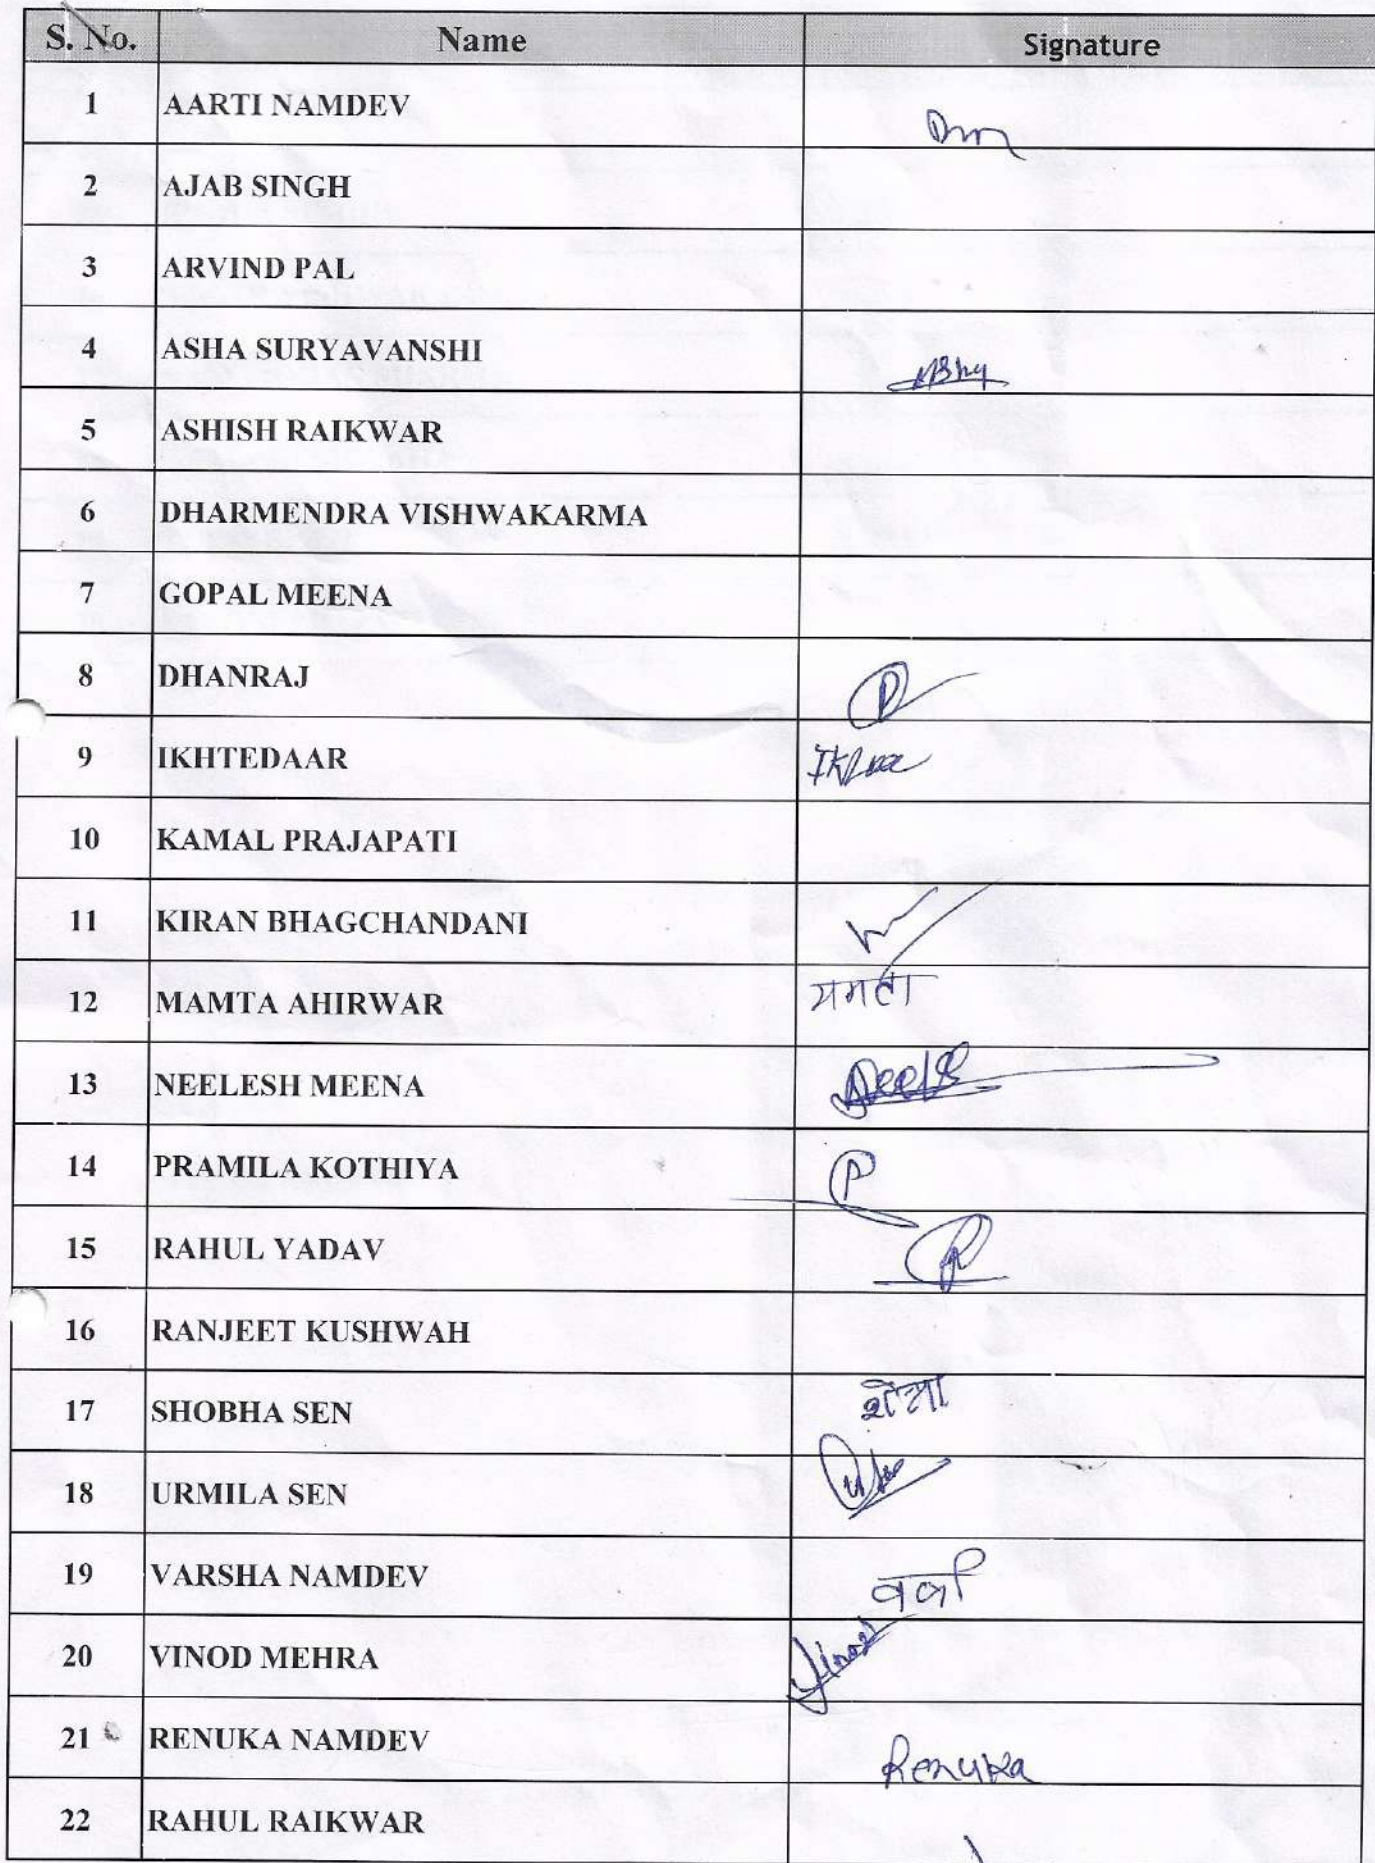 S. No. Name Signature
1 AARTI NAMDEV
2 AJAB SINGH
3 ARVIND PAL
4 ASHA SURYAVANSHI
5 ASHISH RAIKWAR
6 DHARMENDRA VISHWAKARMA
7 GOPAL MEENA
8 DHANRAJ
9 IKHTEDAAR
10 KAMAL PRAJAPATI
11 KIRAN BHAGCHANDANI
12 MAMTA AHIRWAR ममता
13 NEELESH MEENA
14 PRAMILA KOTHIYA P
15 RAHUL YADAV
16 RANJEET KUSHWAH
17 SHOBHA SEN
18 URMILA SEN
19 VARSHA NAMDEV
20 VINOD MEHRA Vinod
21 RENUKA NAMDEV Renuka
22 RAHUL RAIKWAR